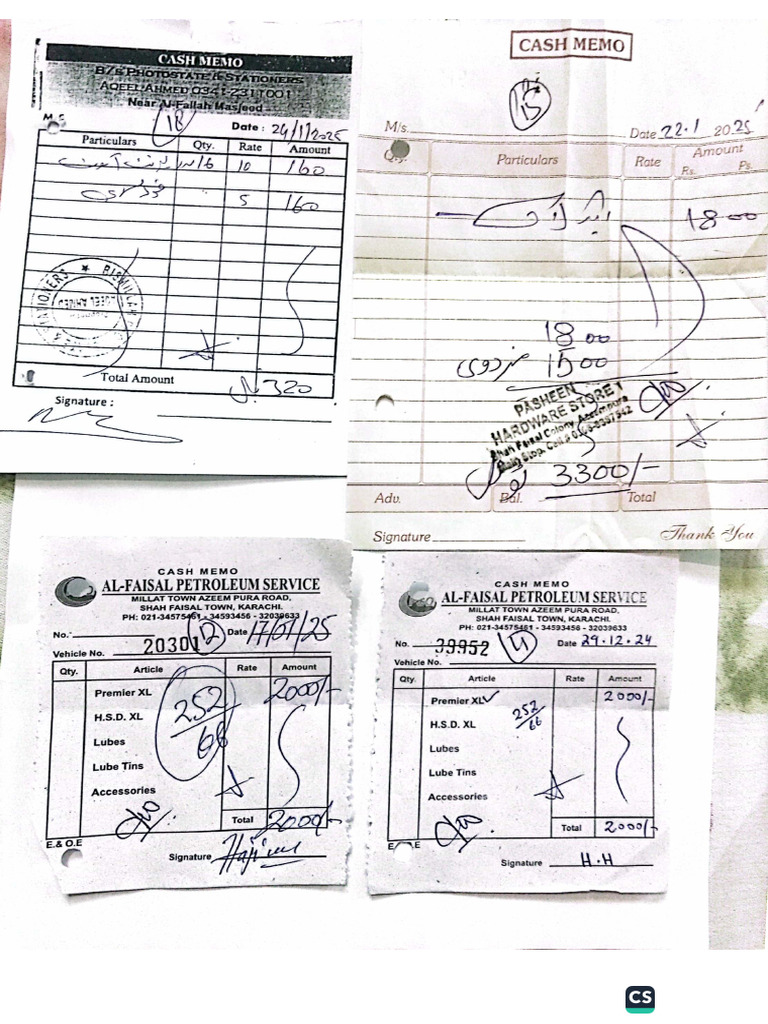 CASH MEMO
B/s PHOTOSTATE & STATIONERS
AQEEL AHMED 0341-2311001
Near Al-Fallah Masjeed
M/S
18
Date : 24/1/2025
Particulars Qty. Rate Amount
16 10 160
5 160
Total Amount 320
Signature :
CASH MEMO
15
M/s. Date 22.1 2025
Qty. Particulars Rate Amount
Rs. Ps.
1800
1800
مزدوری 1500
PASHEEN
HARDWARE STORE
Shah Faisal Colony, Azeempura
3300/-
Adv. Bal. Total
Signature
Thank You
CASH MEMO
AL-FAISAL PETROLEUM SERVICE
MILLAT TOWN AZEEM PURA ROAD,
SHAH FAISAL TOWN, KARACHI.
PH: 021-34575461 - 34593456 - 32039633
No. 20301 12 Date 17/01/25
Vehicle No.
Qty. Article Rate Amount
Premier XL 2000/-
252/66
H.S.D. XL
Lubes
Lube Tins
Accessories
Total 2000/-
E.& O.E
Signature
CASH MEMO
AL-FAISAL PETROLEUM SERVICE
MILLAT TOWN AZEEM PURA ROAD,
SHAH FAISAL TOWN, KARACHI.
PH: 021-34575461 - 34593456 - 32039633
No. 39952 11 Date 29.12.24
Vehicle No.
Qty. Article Rate Amount
Premier XL 2000/-
H.S.D. XL 252/66
Lubes
Lube Tins
Accessories
Total 2000/-
Signature H.H
CS